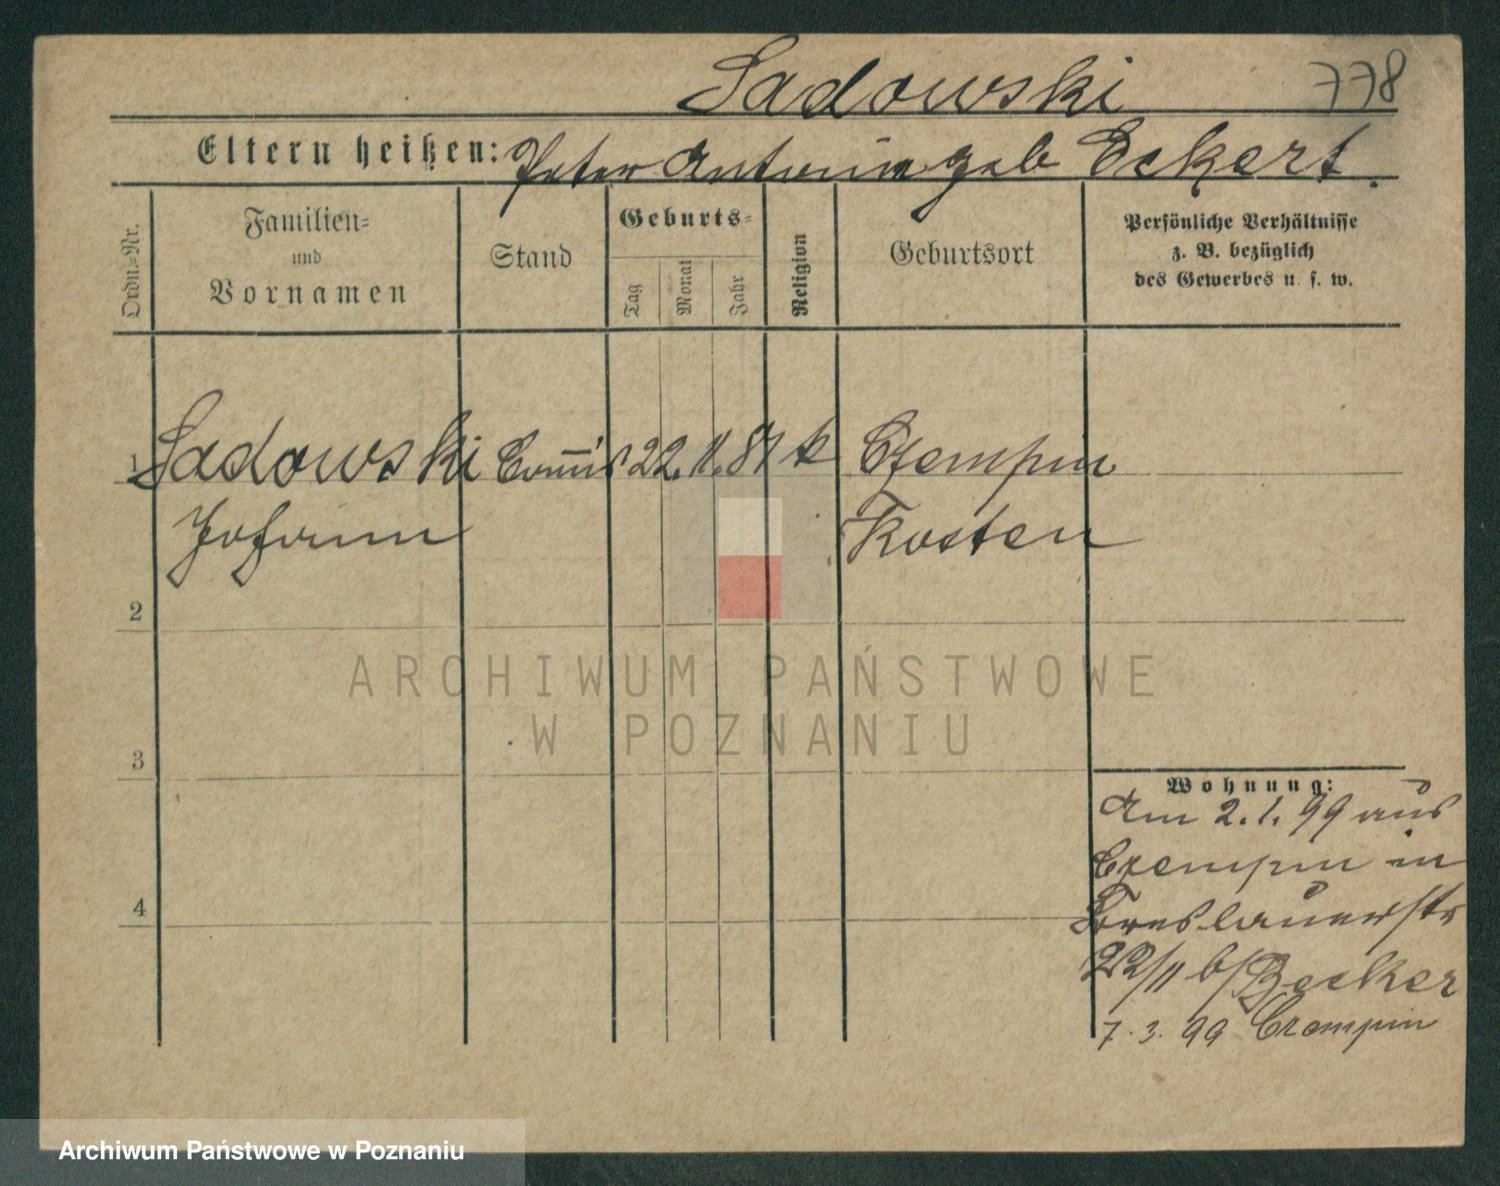 Sadowski 778
Eltern heißen: Peter Antonina geb Eckert.
Ordn.=Nr.
Familien=
und
Vornamen
Stand
Geburts=
Tag
Monat
Jahr
Religion
Geburtsort
Persönliche Verhältnisse
z. B. bezüglich
des Gewerbes u. s. w.
1 Sadowski Commis 22. 11. 81 k Czempin
Johann Kosten
2
ARCHIWUM PAŃSTWOWE
W POZNANIU
3
Wohnung:
Am 2. 1. 99 aus
Czempin in
Breslauerstr
22/II b/ Becker
7. 3. 99 Czempin
4
Archiwum Państwowe w Poznaniu